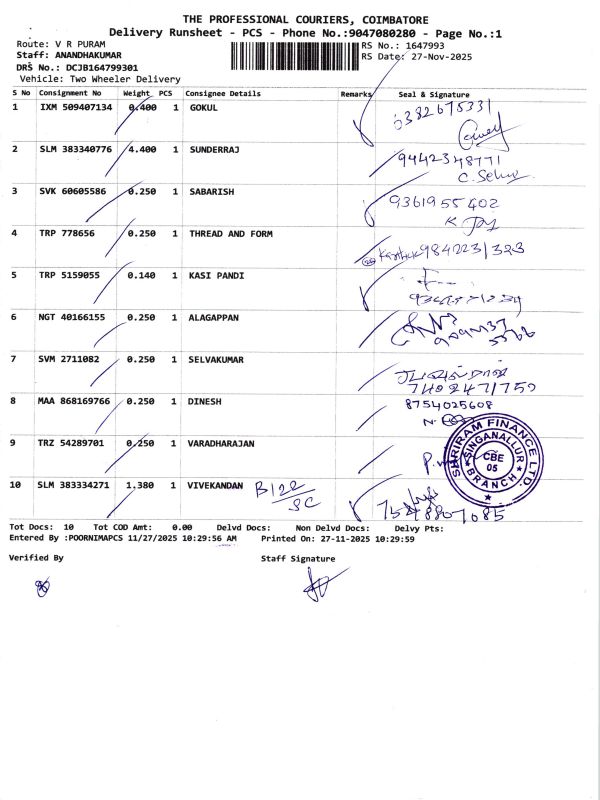 THE PROFESSIONAL COURIERS, COIMBATORE
Delivery Runsheet - PCS - Phone No.:9047080280 - Page No.:1
Route: V R PURAM
RS No.: 1647993
Staff: ANANDHAKUMAR
RS Date: 27-Nov-2025
DRS No.: DCJB164799301
Vehicle: Two Wheeler Delivery
S No Consignment No Weight PCS Consignee Details Remarks Seal & Signature
1 IXM 509407134 0.400 1 GOKUL 6382675331
2 SLM 383340776 4.400 1 SUNDERRAJ 9442348771
3 SVK 60605586 0.250 1 SABARISH 9361955402
4 TRP 778656 0.250 1 THREAD AND FORM 9842231323
5 TRP 5159055 0.140 1 KASI PANDI
6 NGT 40166155 0.250 1 ALAGAPPAN
7 SVM 2711082 0.250 1 SELVAKUMAR
7402471759
8 MAA 868169766 0.250 1 DINESH 8754025608
9 TRZ 54289701 0.250 1 VARADHARAJAN
SHRIRAM FINANCE LTD.
SINGANALLUR
CBE
05
BRANCH
10 SLM 383334271 1.380 1 VIVEKANDAN
7548807085
Tot Docs: 10 Tot COD Amt: 0.00 Delvd Docs: Non Delvd Docs: Delvy Pts:
Entered By :POORNIMAPCS 11/27/2025 10:29:56 AM Printed On: 27-11-2025 10:29:59
Verified By Staff Signature